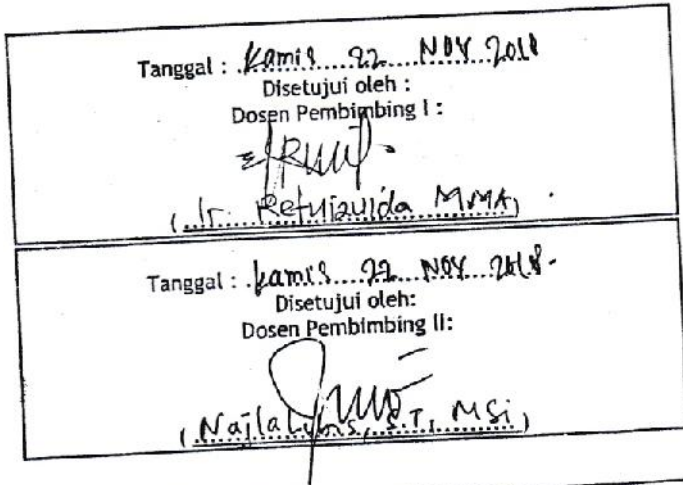 Tanggal : Kamis 22 NOV 2018
Disetujui oleh :
Dosen Pembimbing I :
( Ir. Retnizuida MMA )
Tanggal : Kamis 22 NOV 2018
Disetujui oleh:
Dosen Pembimbing II:
( Najla Lubis, S.T, MSi )